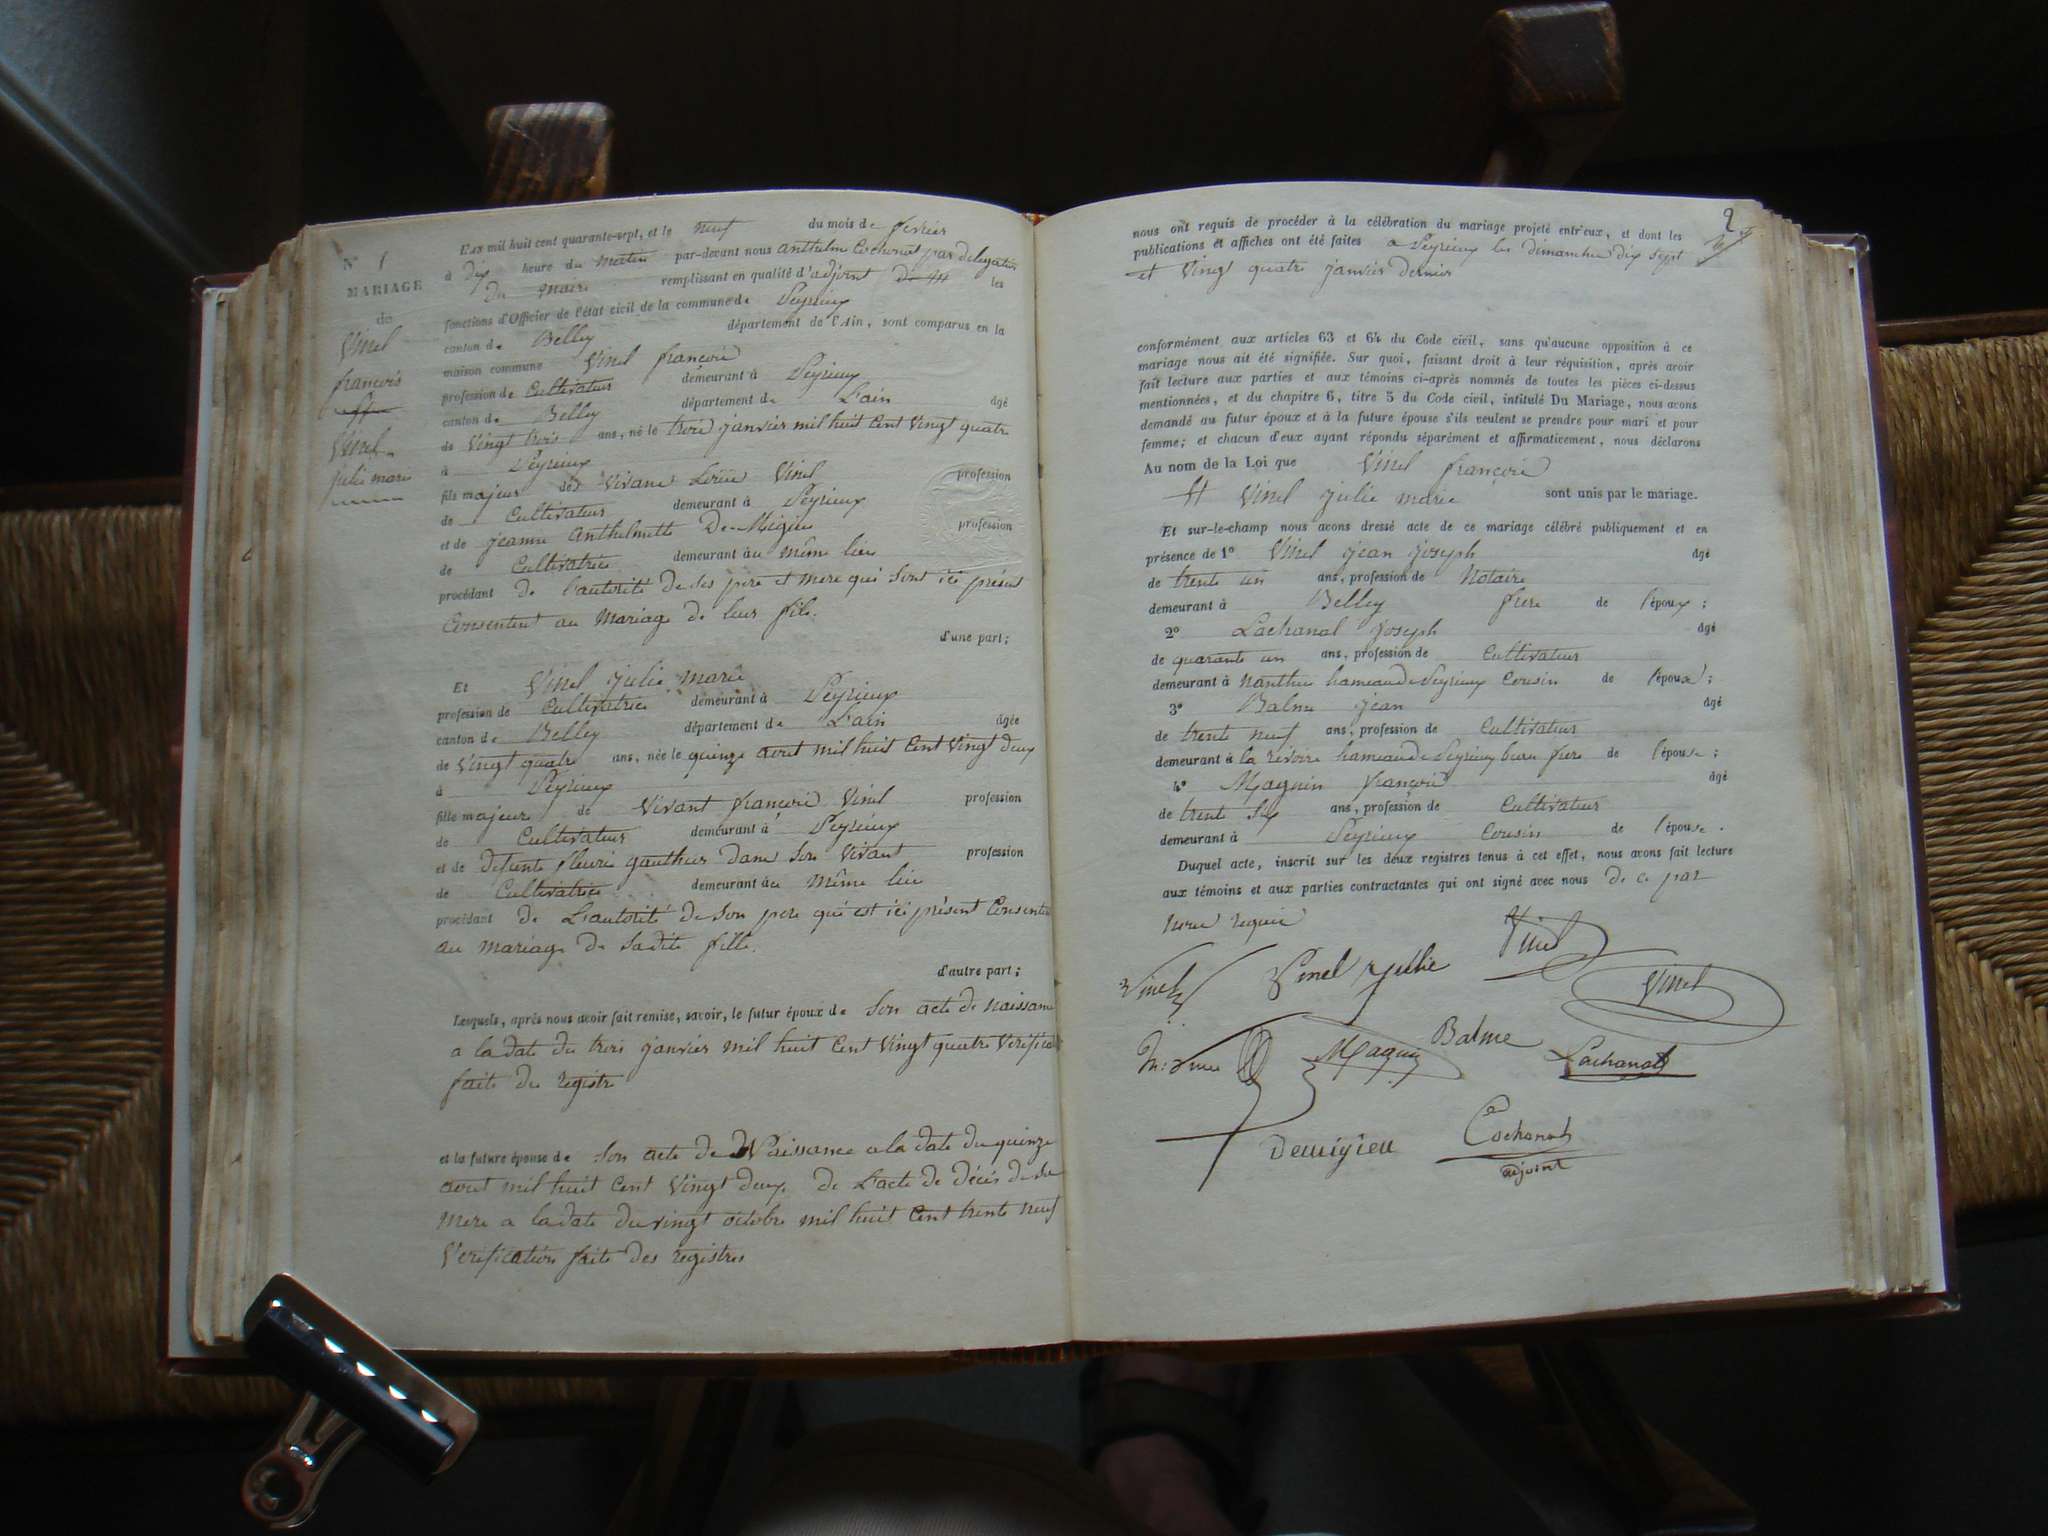 N° 1
MARIAGE
de
Vinel
françois
Vinel
julie marie
L'an mil huit cent quarante-sept, et le neuf du mois de fevrier
à dix heure du matin par-devant nous anthelme Cochonat par delegation
du maire remplissant en qualité d'adjoint les
fonctions d'Officier de l'état civil de la commune de Peyrieux
canton de Belley département de l'Ain, sont comparus en la
maison commune Vinel françois
profession de Cultivateur demeurant à Peyrieux
canton de Belley département de L'ain âgé
de Vingt trois ans, né le trois janvier mil huit Cent Vingt quatre
à Peyrieux
fils majeur de Vinel profession
de Cultivateur demeurant à Peyrieux
et de jeanne anthelmette De Migieu profession
de Cultivatrice demeurant au même lieu
procédant de l'autorité de ses pere et mere qui sont ici présent
Consentent au Mariage de leur fils.
d'une part;
Et Vinel julie marie
profession de Cultivatrice demeurant à Peyrieux
canton de Belley département de L'ain âgée
de Vingt quatre ans, née le quinze aout mil huit Cent Vingt deux
à Peyrieux
fille majeure de Vivant françois Vinel profession
de Cultivateur demeurant à Peyrieux
et de Defunte fleurie gauthier dans son Vivant profession
de Cultivatrice demeurant au même lieu
procédant de L'autorité de son pere qui est ici présent Consentant
au mariage de sadite fille.
d'autre part;
Lesquels, après nous avoir fait remise, savoir, le futur époux de son acte de naissance
a la date du trois janvier mil huit Cent Vingt quatre Verification
faite du registre
et la future épouse de son acte de Naissance a la date du quinze
aout mil huit Cent Vingt deux. de L'acte de décès de sa
mere a la date du vingt octobre mil huit Cent trente neuf
Verification faite des registres
2
nous ont requis de procéder à la célébration du mariage projeté entr'eux, et dont les
publications et affiches ont été faites a Peyrieux les dimanches dix sept
et Vingt quatre janvier dernier
conformément aux articles 63 et 64 du Code civil, sans qu'aucune opposition à ce
mariage nous ait été signifiée. Sur quoi, faisant droit à leur réquisition, après avoir
fait lecture aux parties et aux témoins ci-après nommés de toutes les pièces ci-dessus
mentionnées, et du chapitre 6, titre 5 du Code civil, intitulé Du Mariage, nous avons
demandé au futur époux et à la future épouse s'ils veulent se prendre pour mari et pour
femme; et chacun d'eux ayant répondu séparément et affirmativement, nous déclarons
Au nom de la Loi que Vinel françois
et Vinel julie marie sont unis par le mariage.
Et sur-le-champ nous avons dressé acte de ce mariage célébré publiquement et en
présence de 1° Vinel jean joseph âgé
de trente un ans, profession de Notaire
demeurant à Belley frere de l'époux;
2° Lachanal joseph âgé
de quarante un ans, profession de Cultivateur
demeurant à nanthuy hameau de Peyrieux Cousin de l'époux;
3° Balme jean âgé
de trente neuf ans, profession de Cultivateur
demeurant à la revoire hameau de Peyrieux beau frere de l'épouse;
4° Magnin françois âgé
de trente six ans, profession de Cultivateur
demeurant à Peyrieux Cousin de l'épouse.
Duquel acte, inscrit sur les deux registres tenus à cet effet, nous avons fait lecture
aux témoins et aux parties contractantes qui ont signé avec nous de ce par
nous requis
Vinel Vinel Jullie Vinel
Vinel
Magnin Balme Lachanal
Demigieu Cochonat
adjoint